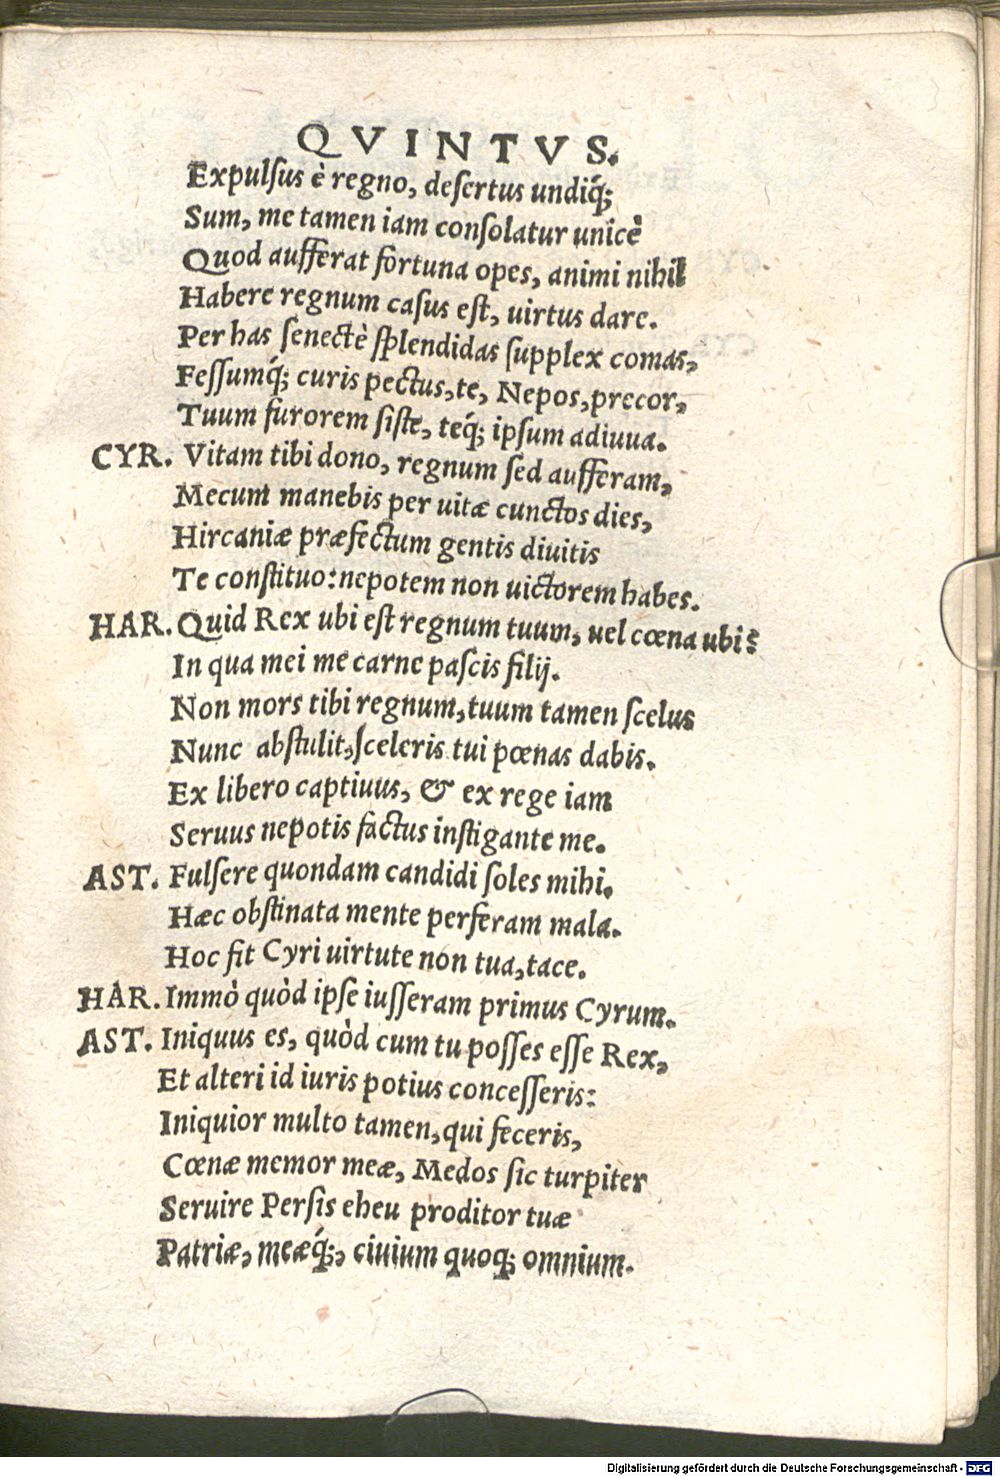 QVINTVS.
Expulsus è regno, desertus undiq́;
Sum, me tamen iam consolatur unicè
Quod aufferat fortuna opes, animi nihil
Habere regnum casus est, uirtus dare.
Per has senectè splendidas supplex comas,
Fessumq́; curis pectus, te, Nepos, precor,
Tuum furorem siste, teq́; ipsum adiuua.
CYR. Vitam tibi dono, regnum sed aufferam,
Mecum manebis per uitæ cunctos dies,
Hircaniæ præfectum gentis diuitis
Te constituo: nepotem non uictorem habes.
HAR. Quid Rex ubi est regnum tuum, uel cœna ubi?
In qua mei me carne pascis filij.
Non mors tibi regnum, tuum tamen scelus
Nunc abstulit, sceleris tui pœnas dabis.
Ex libero captiuus, & ex rege iam
Seruus nepotis factus instigante me.
AST. Fulsere quondam candidi soles mihi.
Hæc obstinata mente perferam mala.
Hoc fit Cyri uirtute non tua, tace.
HAR. Immò quòd ipse iusseram primus Cyrum.
AST. Iniquus es, quòd cum tu posses esse Rex,
Et alteri id iuris potius concesseris:
Iniquior multo tamen, qui feceris,
Cœnæ memor meæ, Medos sic turpiter
Seruire Persis eheu proditor tuæ
Patriæ, meæq́;, ciuium quoq; omnium.
Digitalisierung gefördert durch die Deutsche Forschungsgemeinschaft - DFG